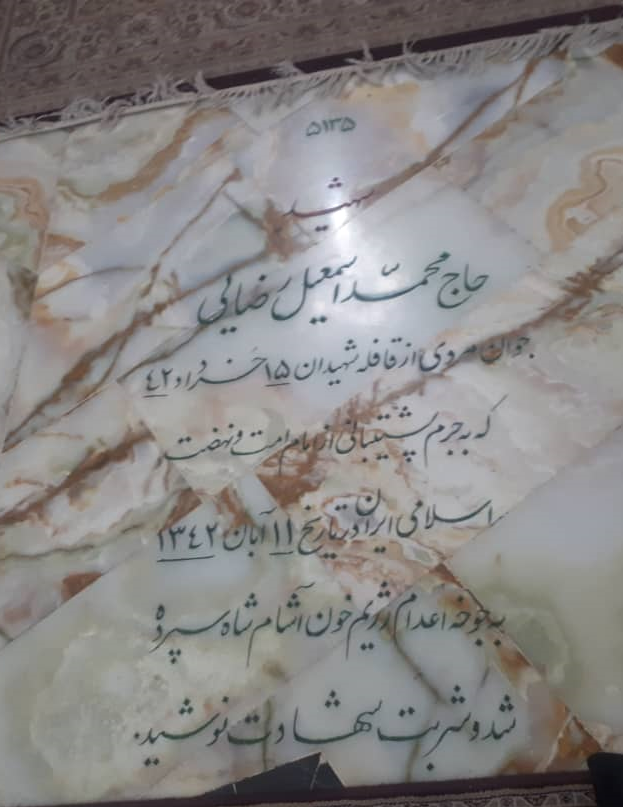 ۵۱۳۵
شهید
حاج محمد اسمعیل رضائی
جوان مردی از قافله شهیدان ۱۵ خرداد ۴۲
که به جرم پشتیبانی از امام امت و نهضت
اسلامی ایران در تاریخ ۱۱ آبان ۱۳۴۲
به جوخه اعدام رژیم خون آشام شاه سپرده
شد و شربت شهادت نوشید.